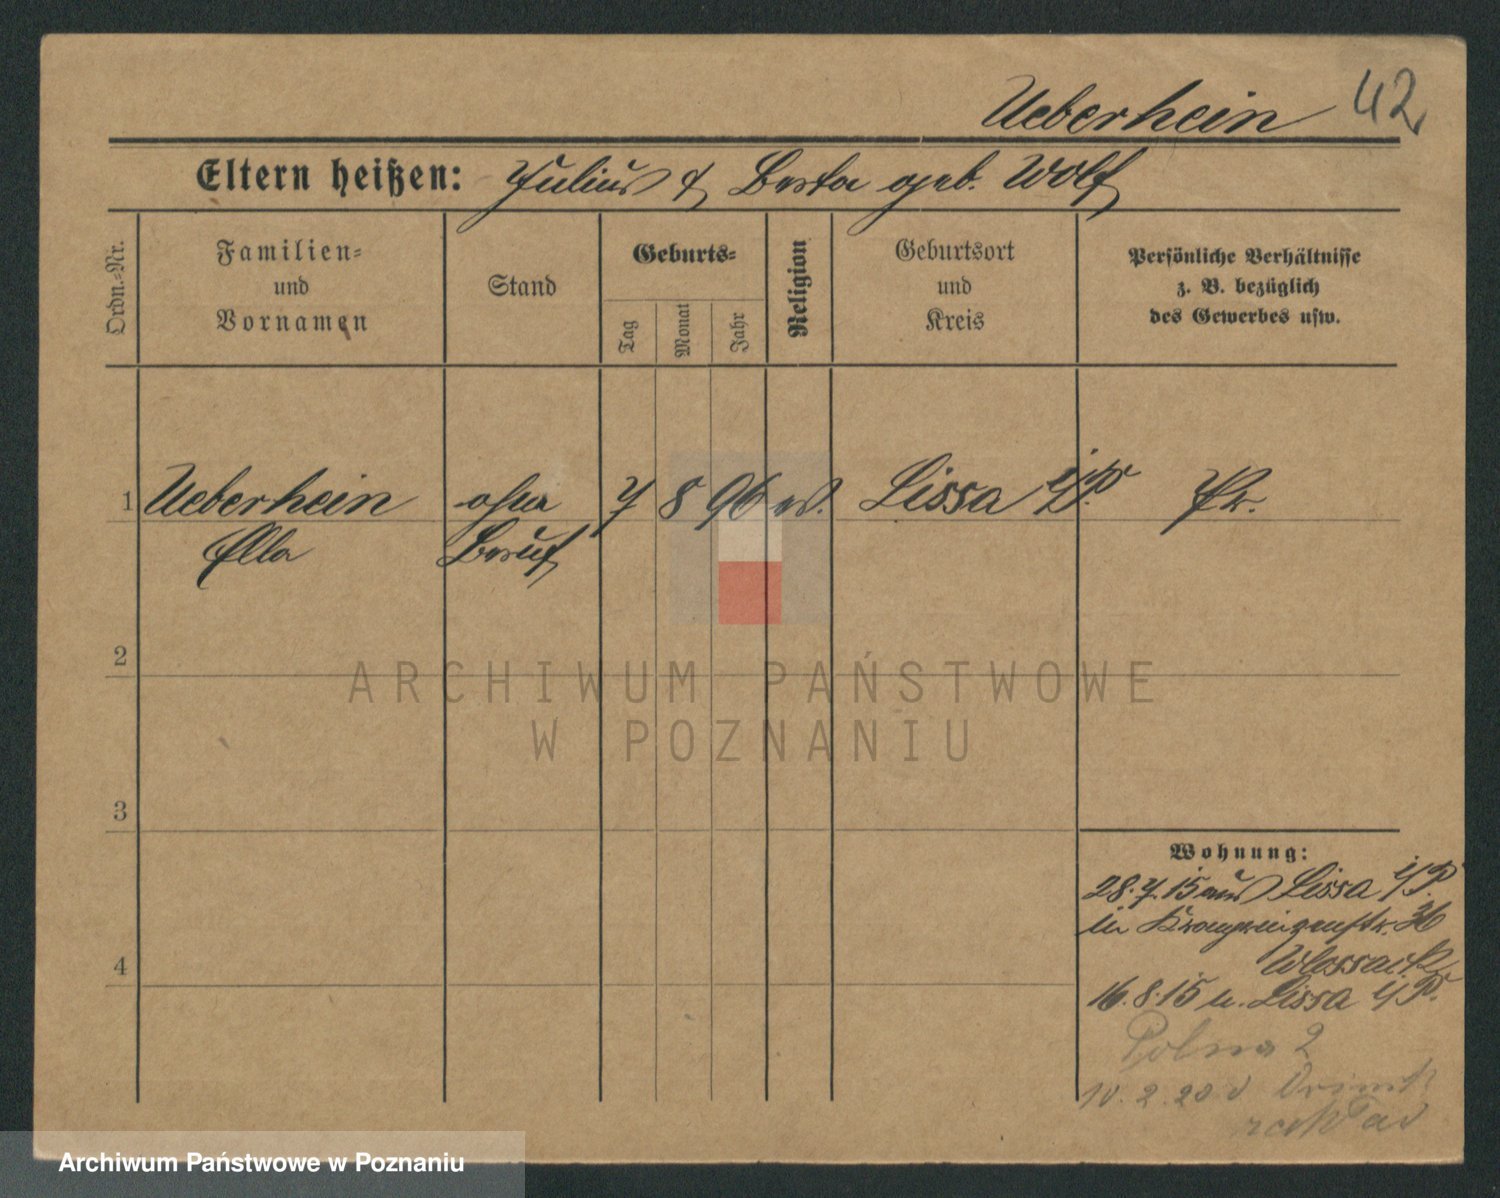 Ueberhein 42
Eltern heißen: Julius & Berta geb. Wolf
Ordn.-Nr.
Familien-
und
Vornamen
Stand
Geburts-
Tag
Monat
Jahr
Religion
Geburtsort
und
Kreis
Persönliche Verhältnisse
z. B. bezüglich
des Gewerbes usw.
1 Ueberhein ohne 7 8 96 ev. Lissa i/P. Pr.
Ella Beruf
2
3
4
Wohnung:
28.7.15 aus Lissa i/P.
in Kronprinzenstr. 36
Wlossack
16.8.15 n. Lissa i/P.
Polna 2
10.2.20
ARCHIWUM PAŃSTWOWE
W POZNANIU
Archiwum Państwowe w Poznaniu